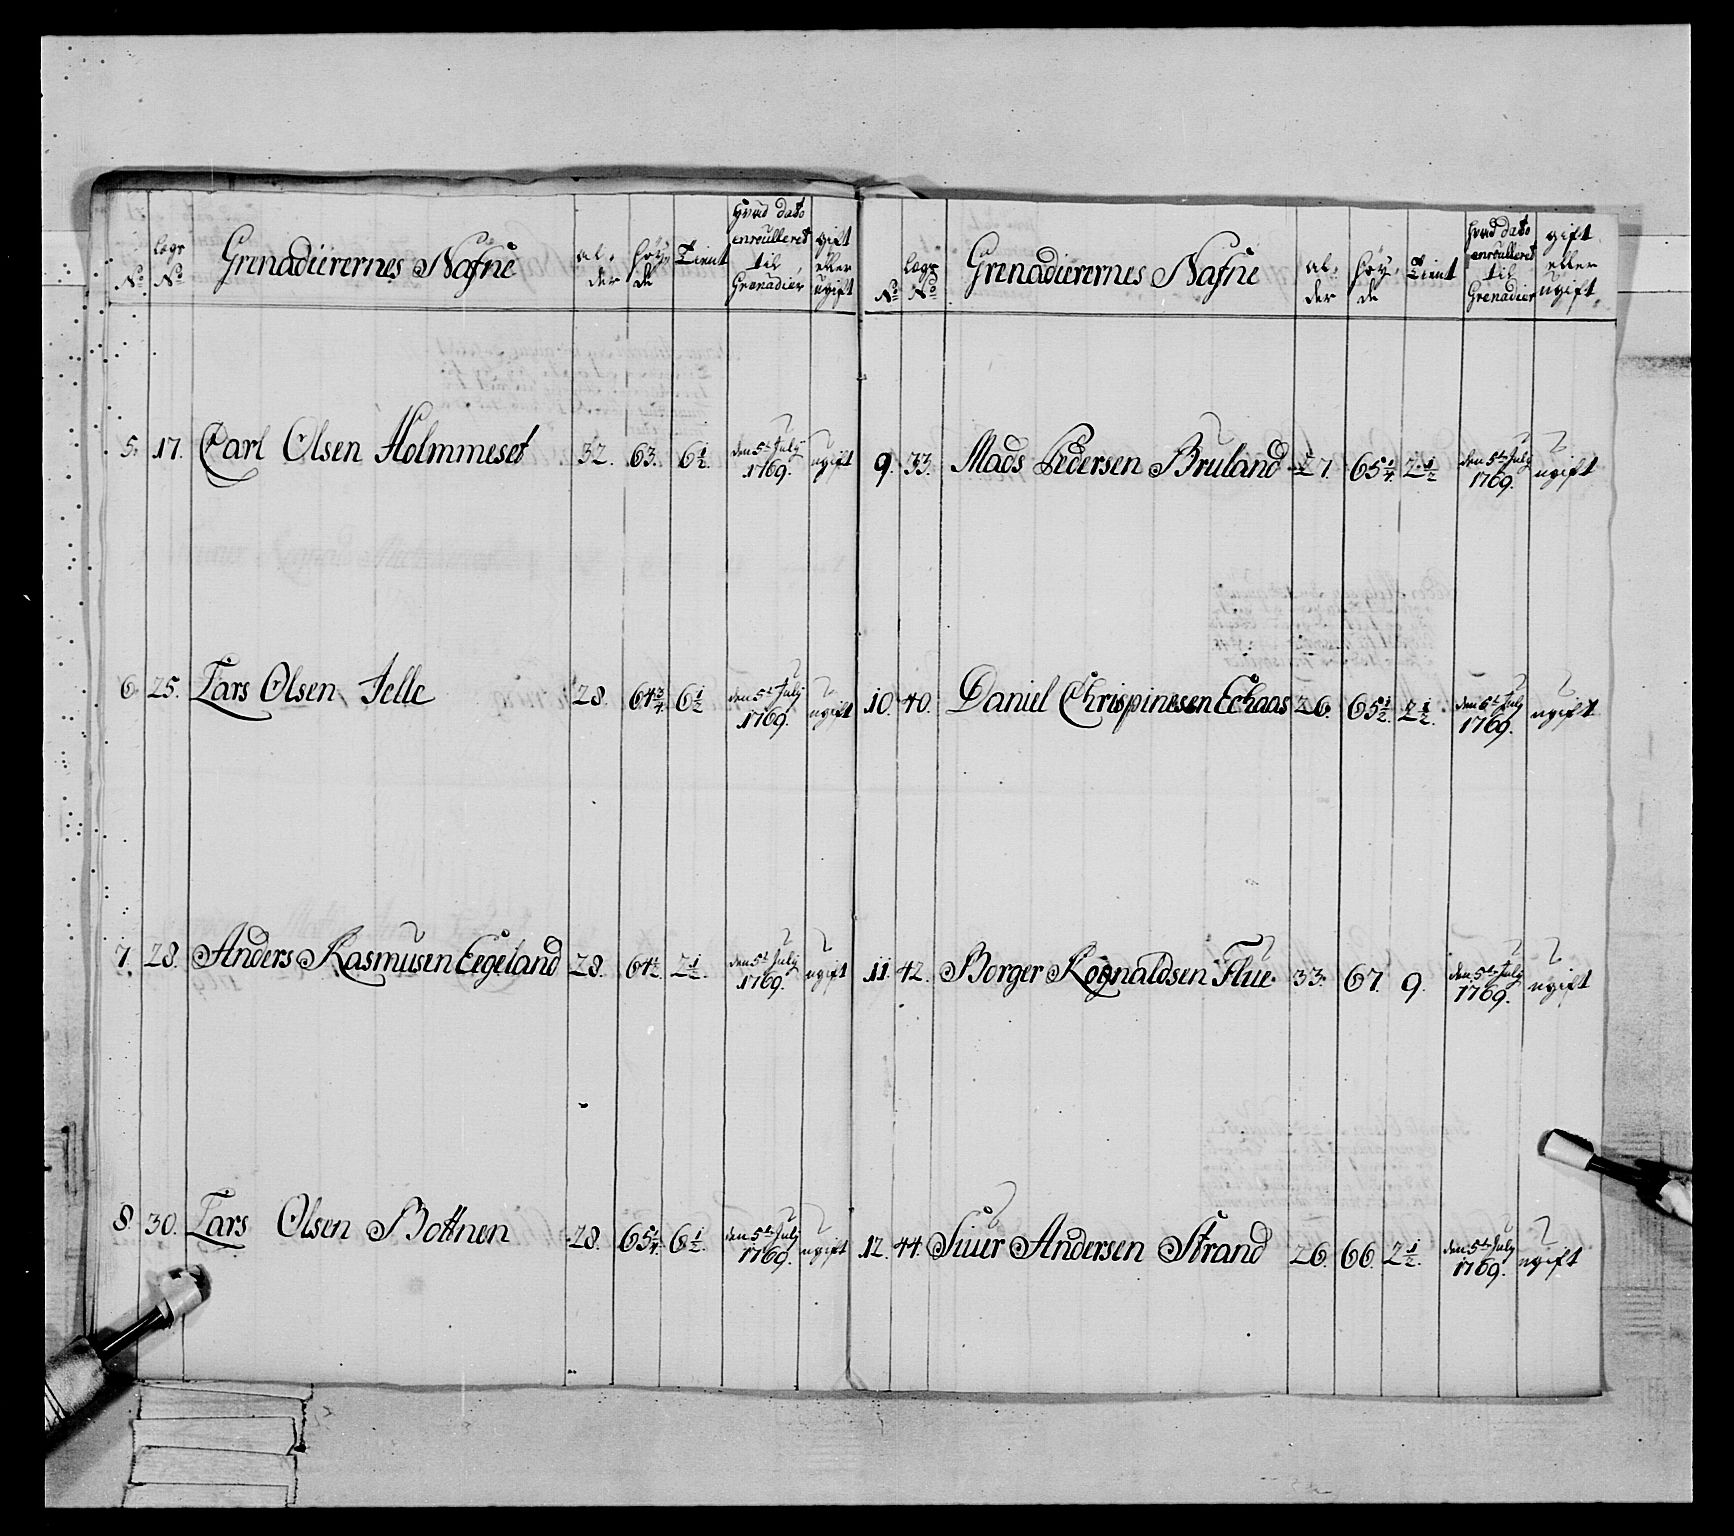 No. Lægs No. Grenadierernes Nafne al- der Høy- de Tient Hvad dato enroulleret til Grenadier gift eller ugift
5. 17. Carl Olsen Holmmeset 32. 63. 6 1/2. den 5te July 1769. ugift
6. 25. Lars Olsen Felle 28. 64 3/4 6 1/2 den 5te July 1769. ugift
7. 28. Anders Rasmusen Eegeland 28. 64 1/2. 2 1/2. den 5te July 1769. ugift
8. 30. Lars Olsen Bottnen 28. 65 1/4. 6 1/2. den 5te July 1769. ugift
No. Lægs No. Grenadierernes Nafne al- der Høy- de Tient Hvad dato enroulleret til Grenadier gift eller ugift.
9. 33. Mads Pedersen Bruland 27. 65 1/4. 2 1/2 den 5te July 1769. ugift
10. 40. Daniel Chrispinesen Echaas 26. 65 1/2. 2 1/2. den 5te July 1769. ugift
11. 42. Borger Rognaldsen Flue. 33. 67. 9. den 5te July 1769. ugift
12. 44. Siuer Andersen Strand 26. 66. 2 1/2. den 5te July 1769. ugift